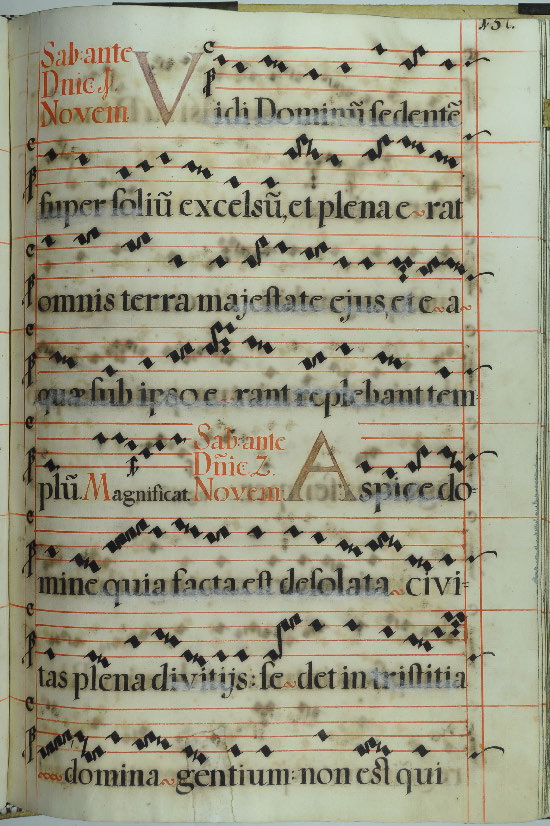 Sab. ante
Dnīe I.
Novem
Vidi Dominū sedentē
super soliū excelsū, et plena e~rat
omnis terra majestate ejus, et e~a~
quæ sub ipso e~rant replebant tem=
plū. Magnificat.
Sab. ante
Dn̄ie 2.
Novem
Aspice do=
mine quia facta est desolata~ civi=
tas plena divitijs: se~det in tristitia
~~~domina~gentium: non est qui